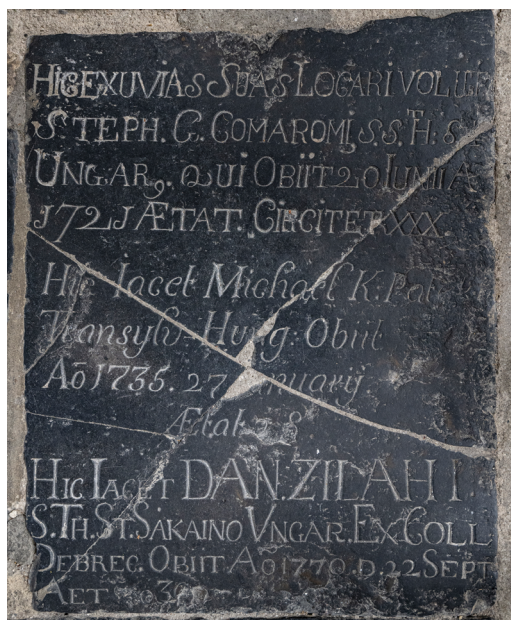 HIC EXUVIAS SUAS LOCARI VOLUIT
STEPH. C. COMAROMI S.S. TH: ST
UNGAR9. QUI OBIIT 20 IUNII A
1721 ÆTAT. CIRCITER XXX.
Hic Iacet Michaël K:
Transylv-Hung: Obiit
Aō 1735. 27 Ianuarij
Ætat 8
HIC IACET DAN. ZILAHI
S. TH. ST. SAKAINO VNGAR. EX COLL
DEBREC. OBIIT Ao 1770 D. 22 SEPT
AET 30